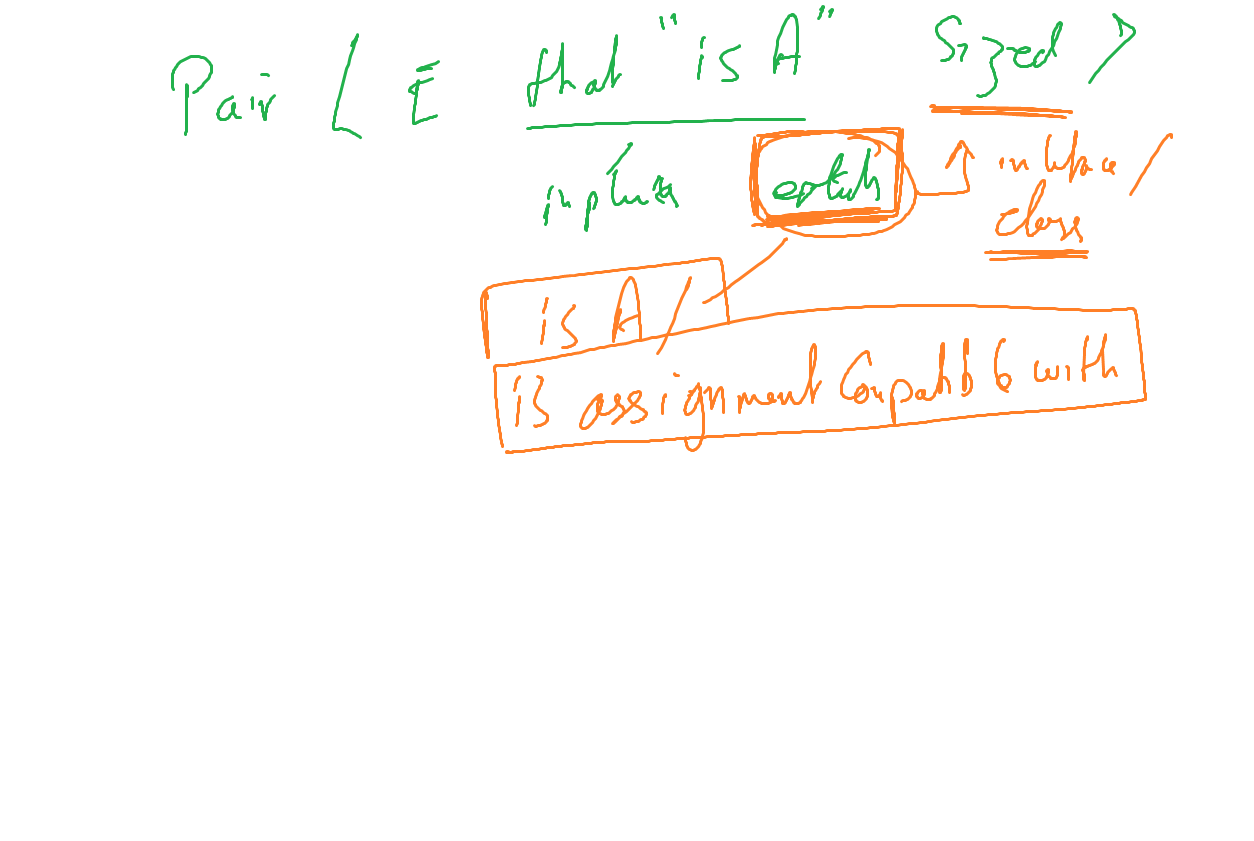 Pair < E that "is A" Sized >
implements extends interface /
class
is A /
is assignment Compatible with